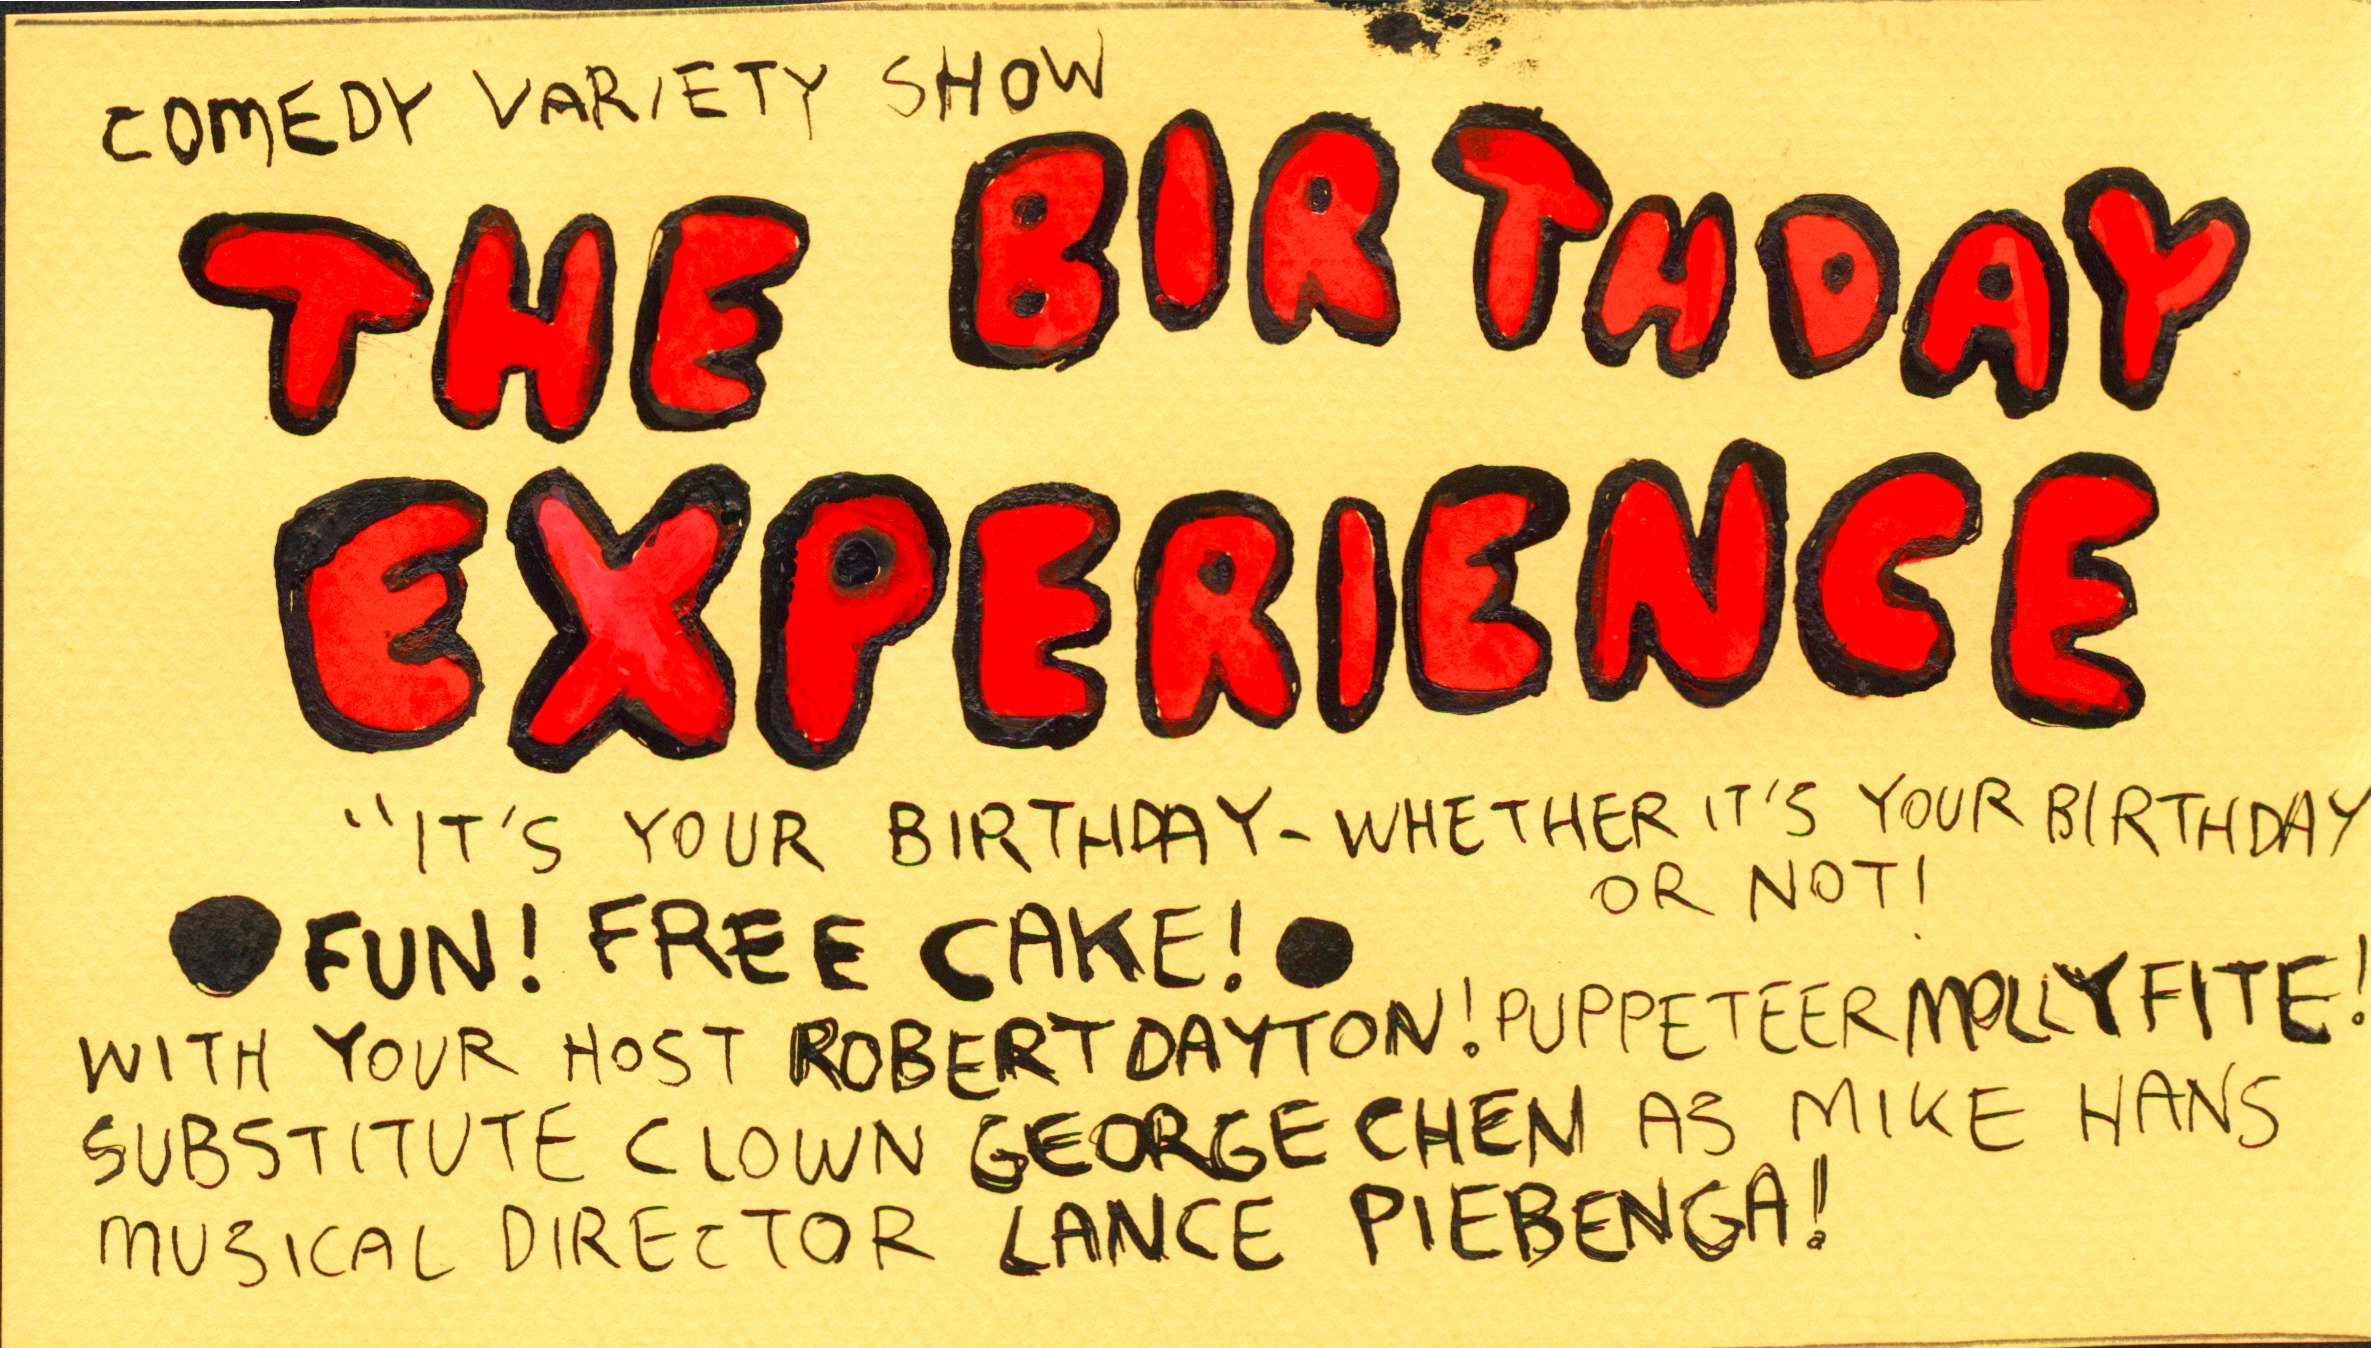 COMEDY VARIETY SHOW
THE BIRTHDAY
EXPERIENCE
"IT'S YOUR BIRTHDAY-WHETHER IT'S YOUR BIRTHDAY
OR NOT!
FUN! FREE CAKE!
WITH YOUR HOST ROBERT DAYTON! PUPPETEER MOLLY FITE!
SUBSTITUTE CLOWN GEORGE CHEN AS MIKE HANS
MUSICAL DIRECTOR LANCE PIEBENGA!